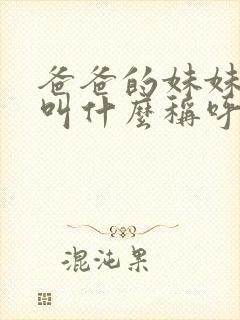 爸爸的妹妹
叫什麼稱呼
混沌果